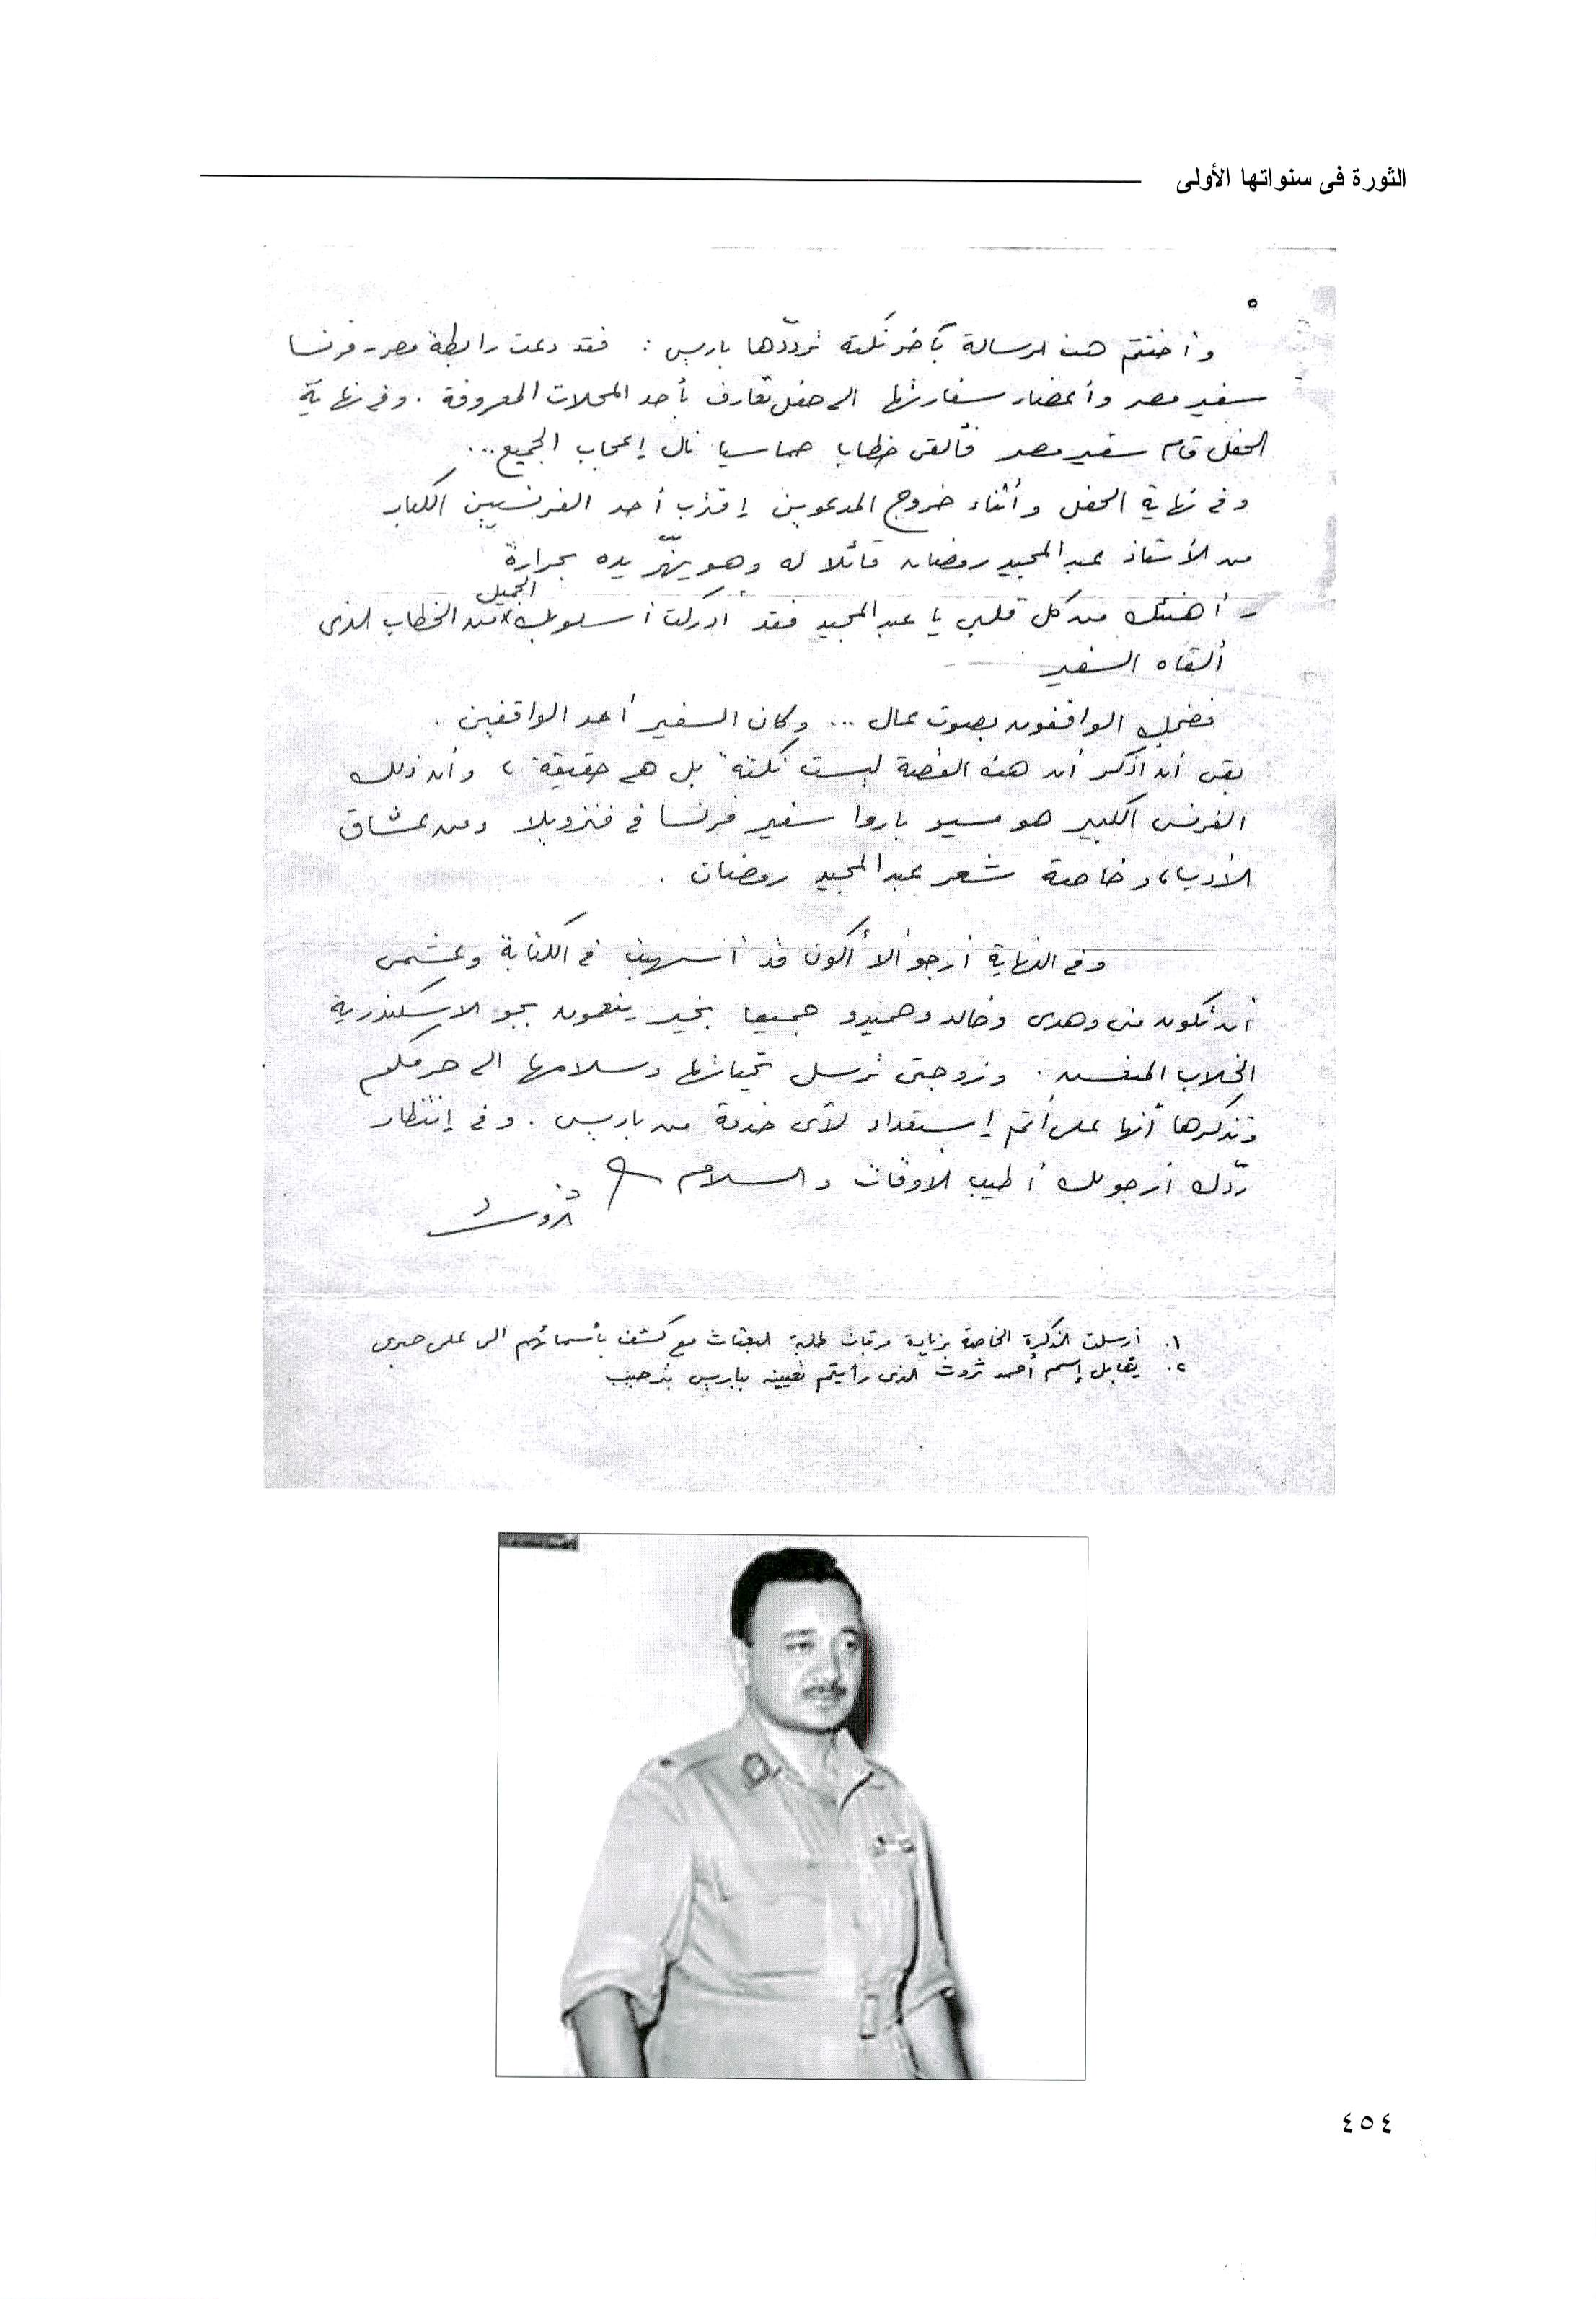 الثورة فى سنواتها الأولى
٥
وأختتم هذه الرسالة بآخر نكتة تردّدها باريس : فقد دعت رابطة مصر - فرنسا
سفير مصر وأعضاء سفارتها الى حفل تعارف بأحد المحلات المعروفة . وفى نهاية
الحفل قام سفير مصر فألقى خطابا حماسيا نال إعجاب الجميع ...
وفى نهاية الحفل وأثناء خروج المدعوين إقترب أحد الفرنسيين الكبار
من الأستاذ عبد المجيد رمضان قائلا له وهو يهزّ يده بحرارة
- أهنئك من كل قلبى يا عبد المجيد فقد أدركت أسلوبك الجميل من الخطاب الذى
ألقاه السفير
فضحك الواقفون بصوت عال ... وكان السفير أحد الواقفين .
بقى أن أذكر أن هذه القصة ليست نكتة بل هى حقيقة ، وأن ذلك
الفرنسى الكبير هو مسيو باروا سفير فرنسا فى فنزويلا ومن عشاق
الأدب ، وخاصة شعر عبد المجيد رمضان .
وفى النهاية أرجو ألا أكون قد أسهبت فى الكتابة وعشمى
أن تكون منى وهدى وخالد وحميدو جميعا بخير ينعمون بجو الاسكندرية
الخلاب المنعش . وزوجتى ترسل تحياتها وسلامها الى حرمكم
وتذكرها أنها على أتم إستعداد لأى خدمة من باريس . وفى إنتظار
ردّك أرجو لك أطيب الأوقات والسلام
ثروت
١. أرسلت المذكرة الخاصة بزيادة مرتبات طلبة البعثات مع كشف بأسمائهم الى على صبرى
٢. يقابل إسم أحمد ثروت الذى رأيتم تعيينه بباريس بترحيب
٤٥٤